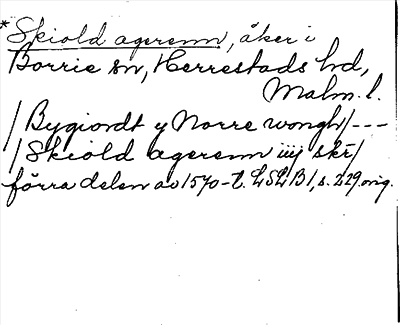 *Skiold agerenn, åker i
Borrie sn, Herrestads hd,
Malm. l.
/ Bygiondt y Norre wongh/---
/ Skiold agerenn iiij skr/
förra delen av 1570-t. LSLB1, s. 229 orig.